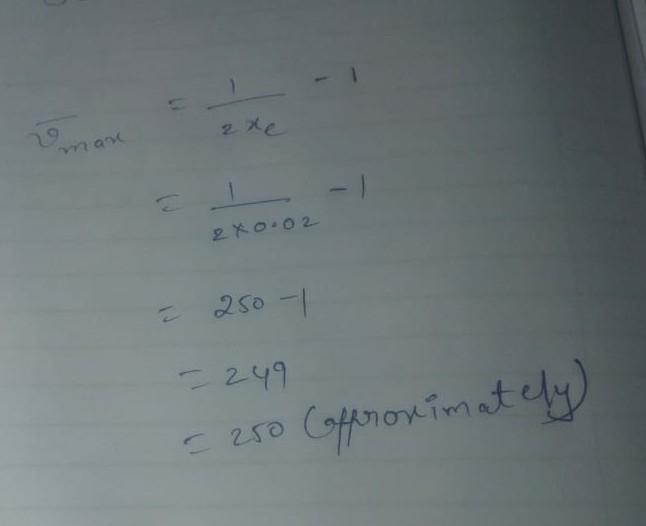 v̄max = 1/2xe - 1
= 1/2×0.02 - 1
= 250 - 1
= 249
= 250 (approximately)